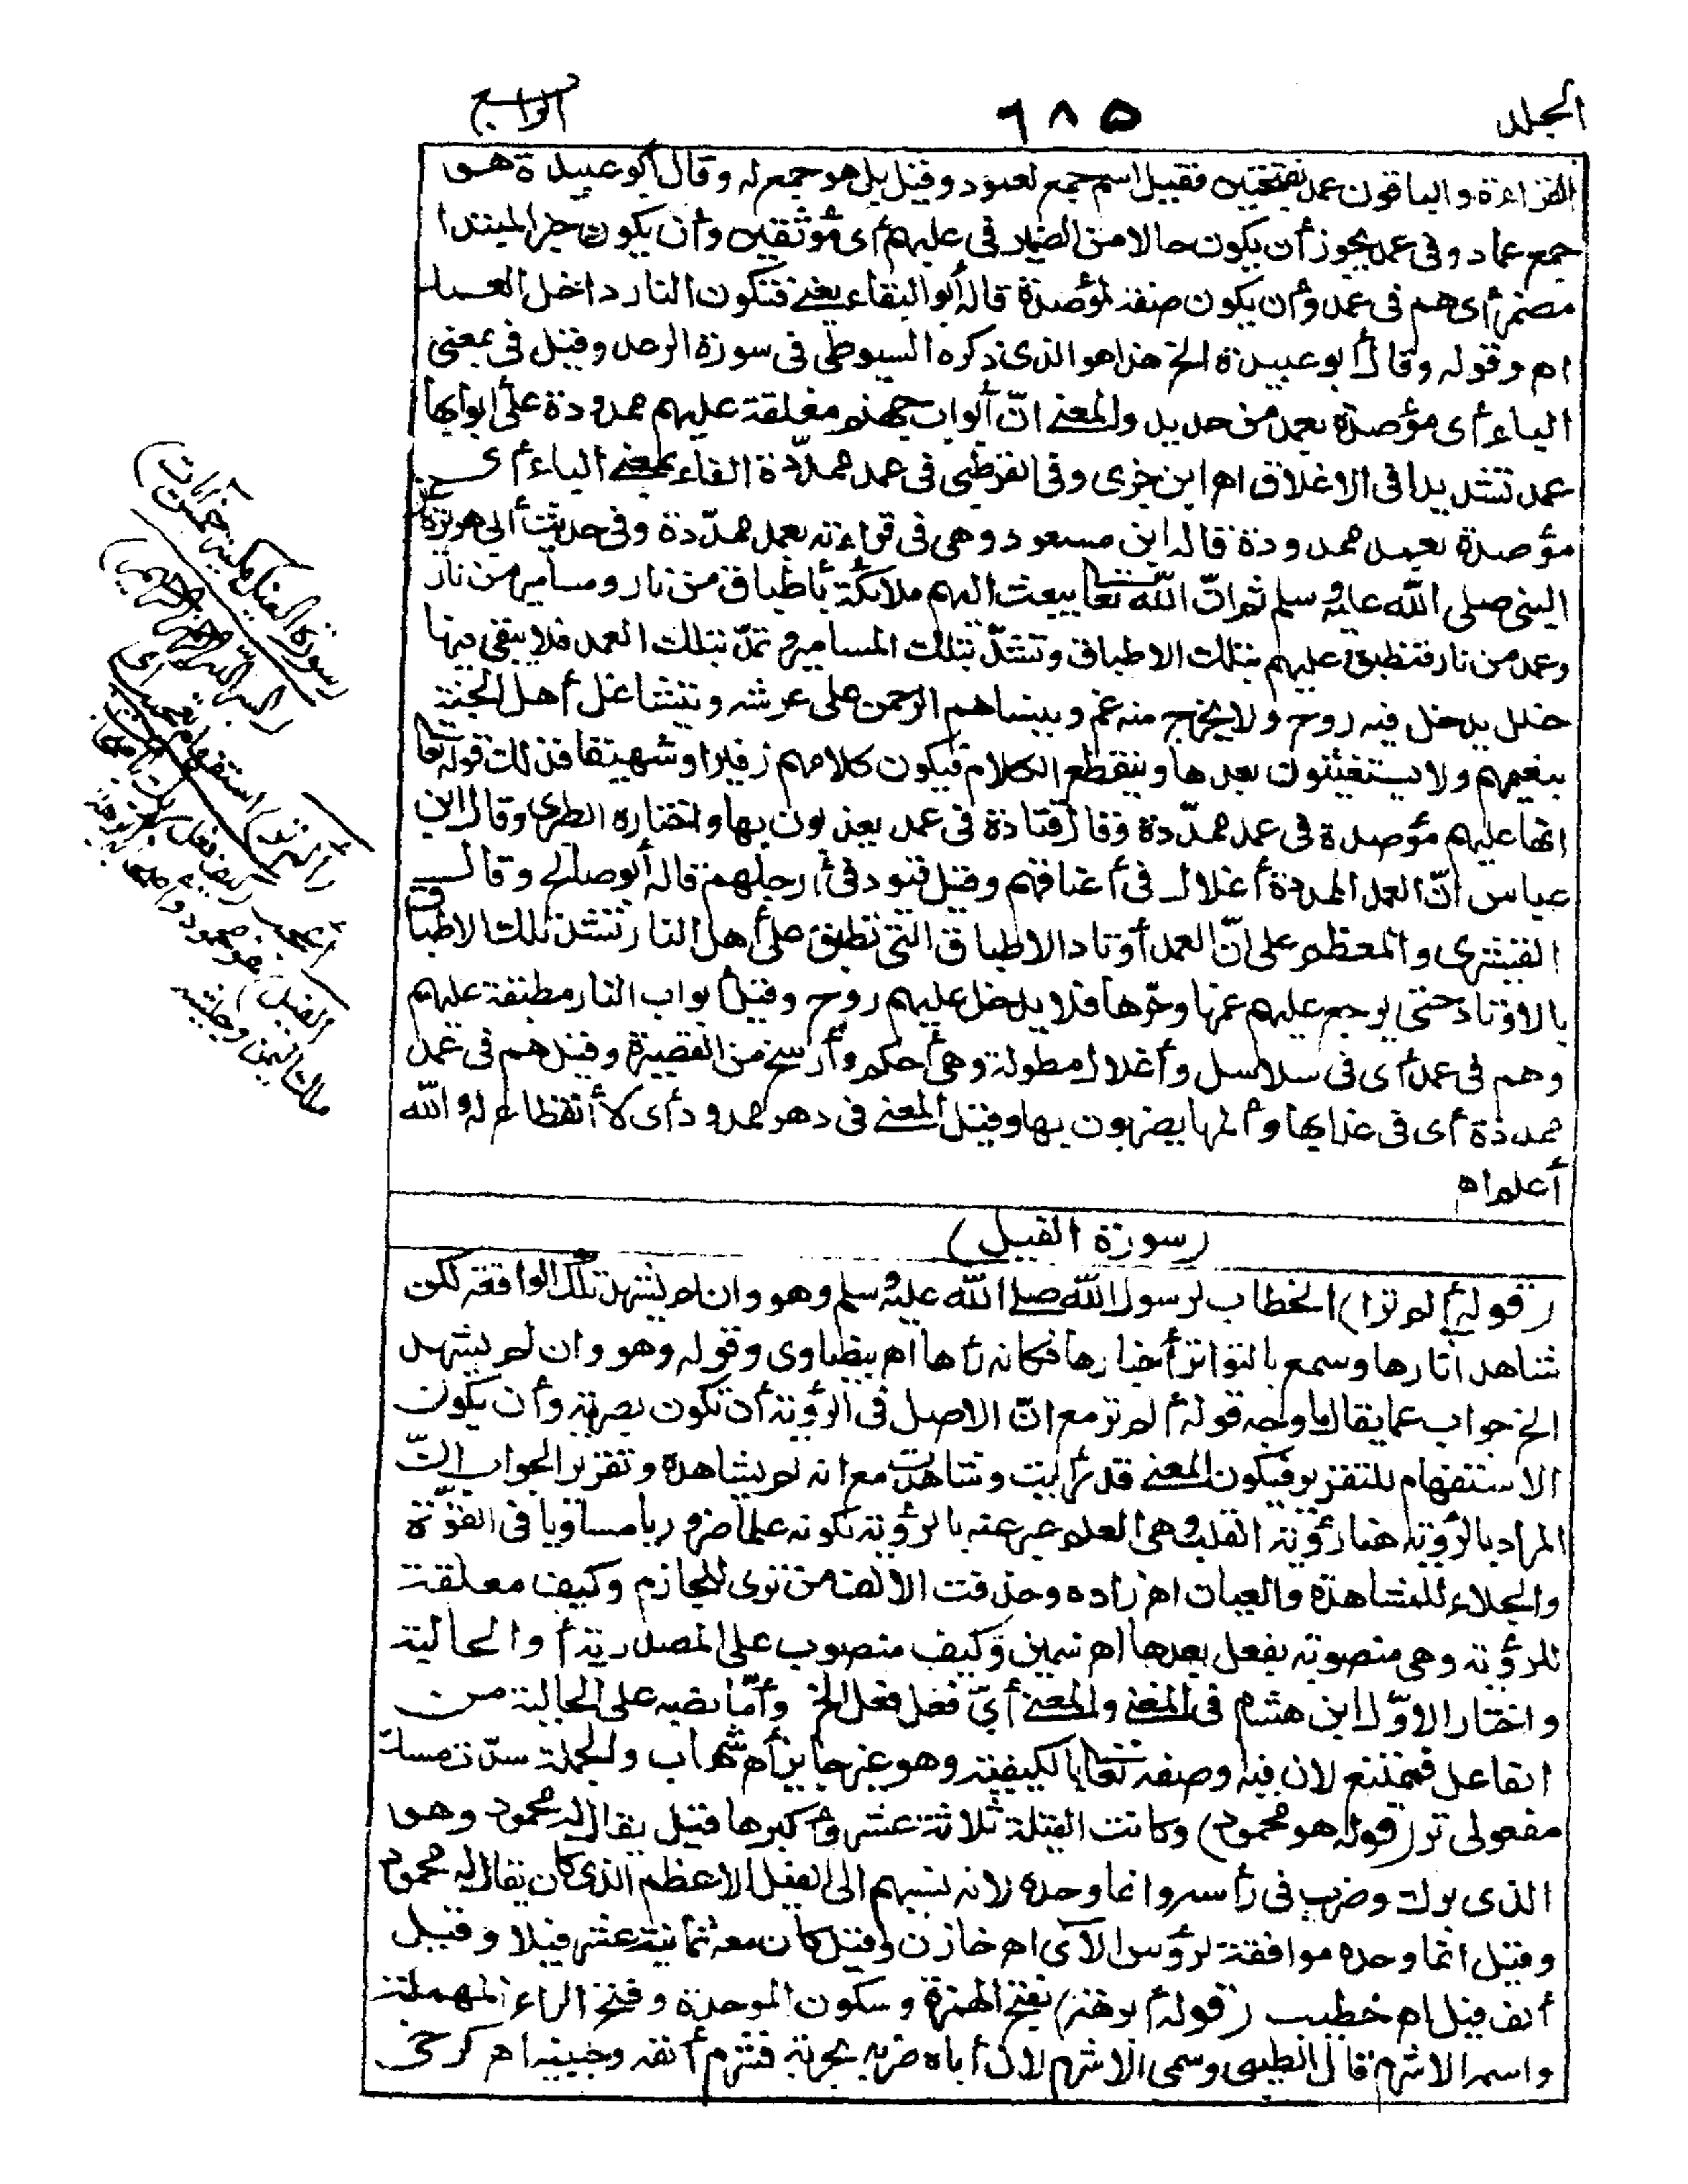 المجلد
٦٨٥
الرابع
القراءة والباقون عمد بفتحتين فقيل اسم جمع لعمود وقيل بل هو جمع له وقال أبو عبيدة هو
جمع عماد وفى عمد يجوز أن يكون حالا من الضمير فى عليهم أى موثقين وأن يكون خبر المبتدا
مضمر أى هم فى عمد وأن يكون صفة لمؤصدة قاله أبو البقاء يعنى فتكون النار داخل العمد
اه وقوله وقال أبو عبيدة الخ هذا هو الذى ذكره السيوطى فى سورة الرعد وقيل فى بمعنى
الباء أى مؤصدة بعمد من حديد والمعنى انّ أبواب جهنم مغلقة عليهم ممدودة على أبوابها
عمد تشديدا فى الاغلاق اه ابن جزى وفى القرطبى فى عمد ممدّدة الفاء بمعنى الباء أى
مؤصدة بعمد ممدودة قاله ابن مسعود وهى فى قراءته بعمد ممدّدة وفى حديث أبى هريرة عن
النبى صلى الله عليه وسلم ثم انّ الله تعالى يبعث اليهم ملائكة بأطباق من نار ومسامير من نار
وعمد من نار فتطبق عليهم بتلك الاطباق وتشدّ بتلك المسامير وتمدّ بتلك العمد فلا يبقى فيها
خلل يدخل فيه روح ولا يخرج منه غم وينساهم الرحمن على عرشه ويتشاغل أهل الجنة
بنعيمهم ولا يستغيثون بعدها وينقطع الكلام فيكون كلامهم زفيرا وشهيقا فذلك قوله تعالى
انها عليهم مؤصدة فى عمد ممدّدة وقال قتادة فى عمد يعذبون بها واختاره الطبرى وقال ابن
عباس انّ العمد الممددة أغلال فى أعناقهم وقيل قيود فى أرجلهم قاله أبو صالح وقال
القشيرى والمعظم على انّ العمد أوتاد الاطباق التى تطبق على أهل النار تشد تلك الاطباق
بالاوتاد حتى يرجع عليهم غمها وحرّها فلا يدخل عليهم روح وقيل أبواب النار مطبقة عليهم
وهم فى عمد أى فى سلاسل وأغلال مطولة وهى أحكم وأرسخ من القصيرة وقيل هم فى عمد
ممددة أى فى عذابها وألمها يضربون بها وقيل المعنى فى دهر ممدود أى لا أنقطاع له والله
أعلم اه
(سورة الفيل)
(قوله ألم تر) الخطاب لرسول الله صلى الله عليه وسلم وهو وان لم يشهد تلك الواقعة لكن
شاهد آثارها وسمع بالتواتر أخبارها فكانه رآها اه بيضاوى وقوله وهو وان لم يشهد
الخ جواب عما يقال ما وجه قوله ألم تر مع انّ الاصل فى الرؤية أن تكون بصرية وأن يكون
الاستفهام للتقرير فيكون المعنى قد رأيت وشاهدت مع انه لم يشاهده وتقرير الجواب انّ
المراد بالرؤية هنا رؤية القلب وهى العلم عبر عنه بالرؤية لكونه علما ضروريا مساويا فى القوّة
والجلاء للمشاهدة والعيان اه زاده وحذفت الالف من ترى للجازم وكيف معلقة
للرؤية وهى منصوبة بفعل بعدها اه سمين وكيف منصوب على المصدرية أو الحالية
واختار الاوّل ابن هشام فى المغنى والمعنى أىّ فعل فعل الخ وأمّا نصبه على الحالية من
الفاعل فممتنع لان فيه وصفه تعالى بالكيفية وهو غير جايز اه شهاب والجملة سدّت مسدّ
مفعولى تر (قوله هو محمود) وكانت الفيلة ثلاثة عشر وأكبرها فيل يقال له محمود وهو
الذى برك وضرب فى رأسه وانما وحده لانه نسبهم الى الفيل الاعظم الذى كان يقال له محمود
وقيل انما وحده موافقة لرؤس الآى اه خازن وقيل كان معه ثمانية عشر فيلا وقيل
ألف فيل اه خطيب (قوله أبرهة) بفتح الهمزة وسكون الموحدة وفتح الراء المهملة
واسمه الاشرم قال الطيبى وسمى الاشرم لان أباه ضربه بحربة فشرم أنفه وجبينه اه كرخى
(سورة الفيل مكية خمس آيات)
(بسم الله الرحمن الرحيم)
(ألم تر) استفهام تعجيب أى
أعجب (كيف فعل ربك بأصحاب
الفيل) هو محمود وأصحابه أبرهة
ملك اليمن وجيشه